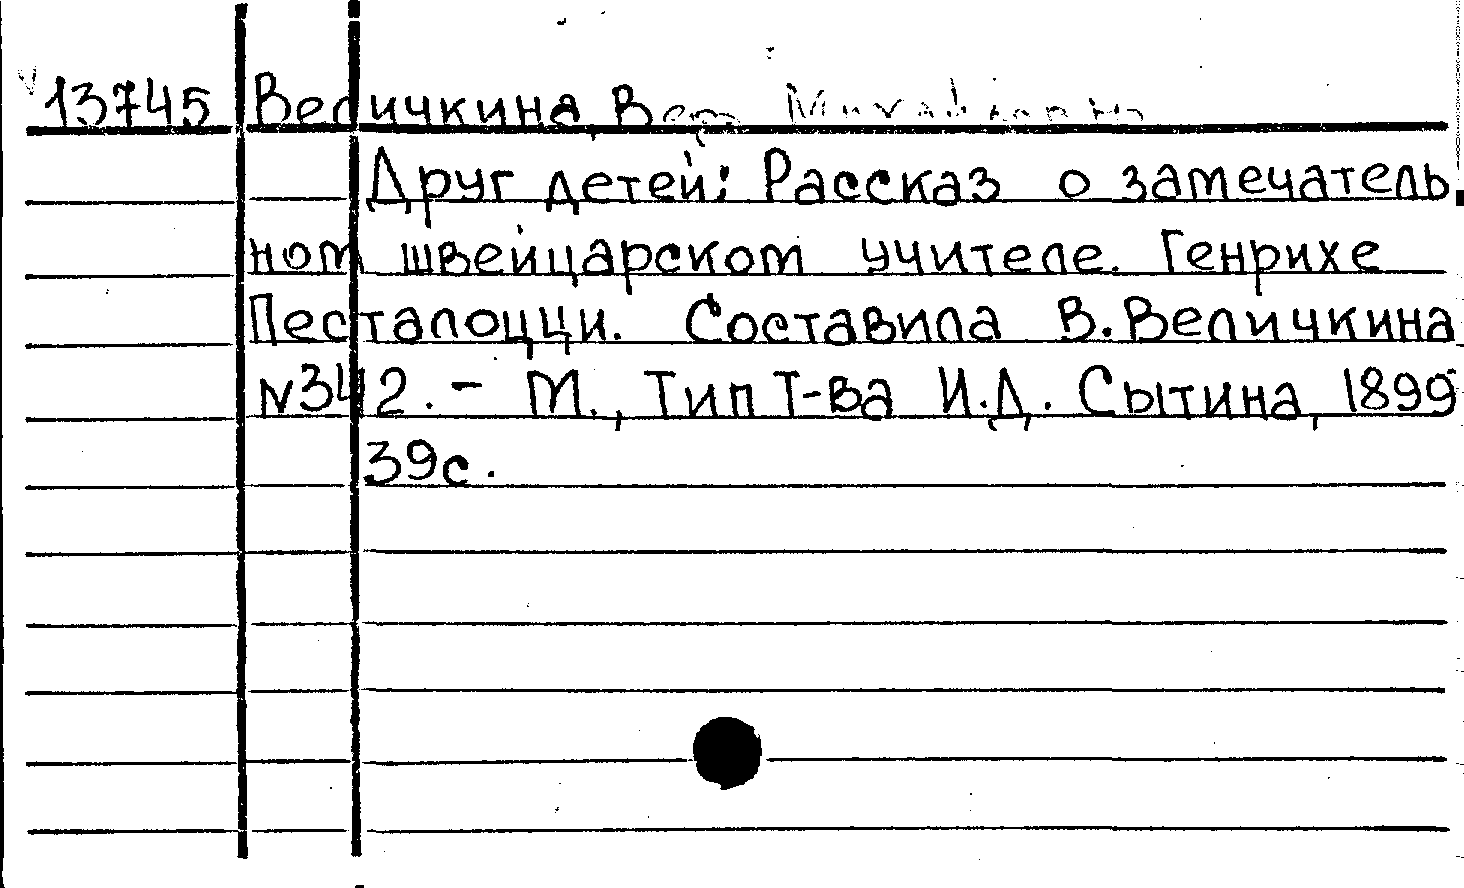 13745 Величкина, Вера Михайловна
Друг детей: Рассказ о замечатель
ном швейцарском учителе. Генрихе
Песталоцци. Составила В. Величкина
N 3412. - М., Тип Т-ва И.Д. Сытина, 1899
39с.